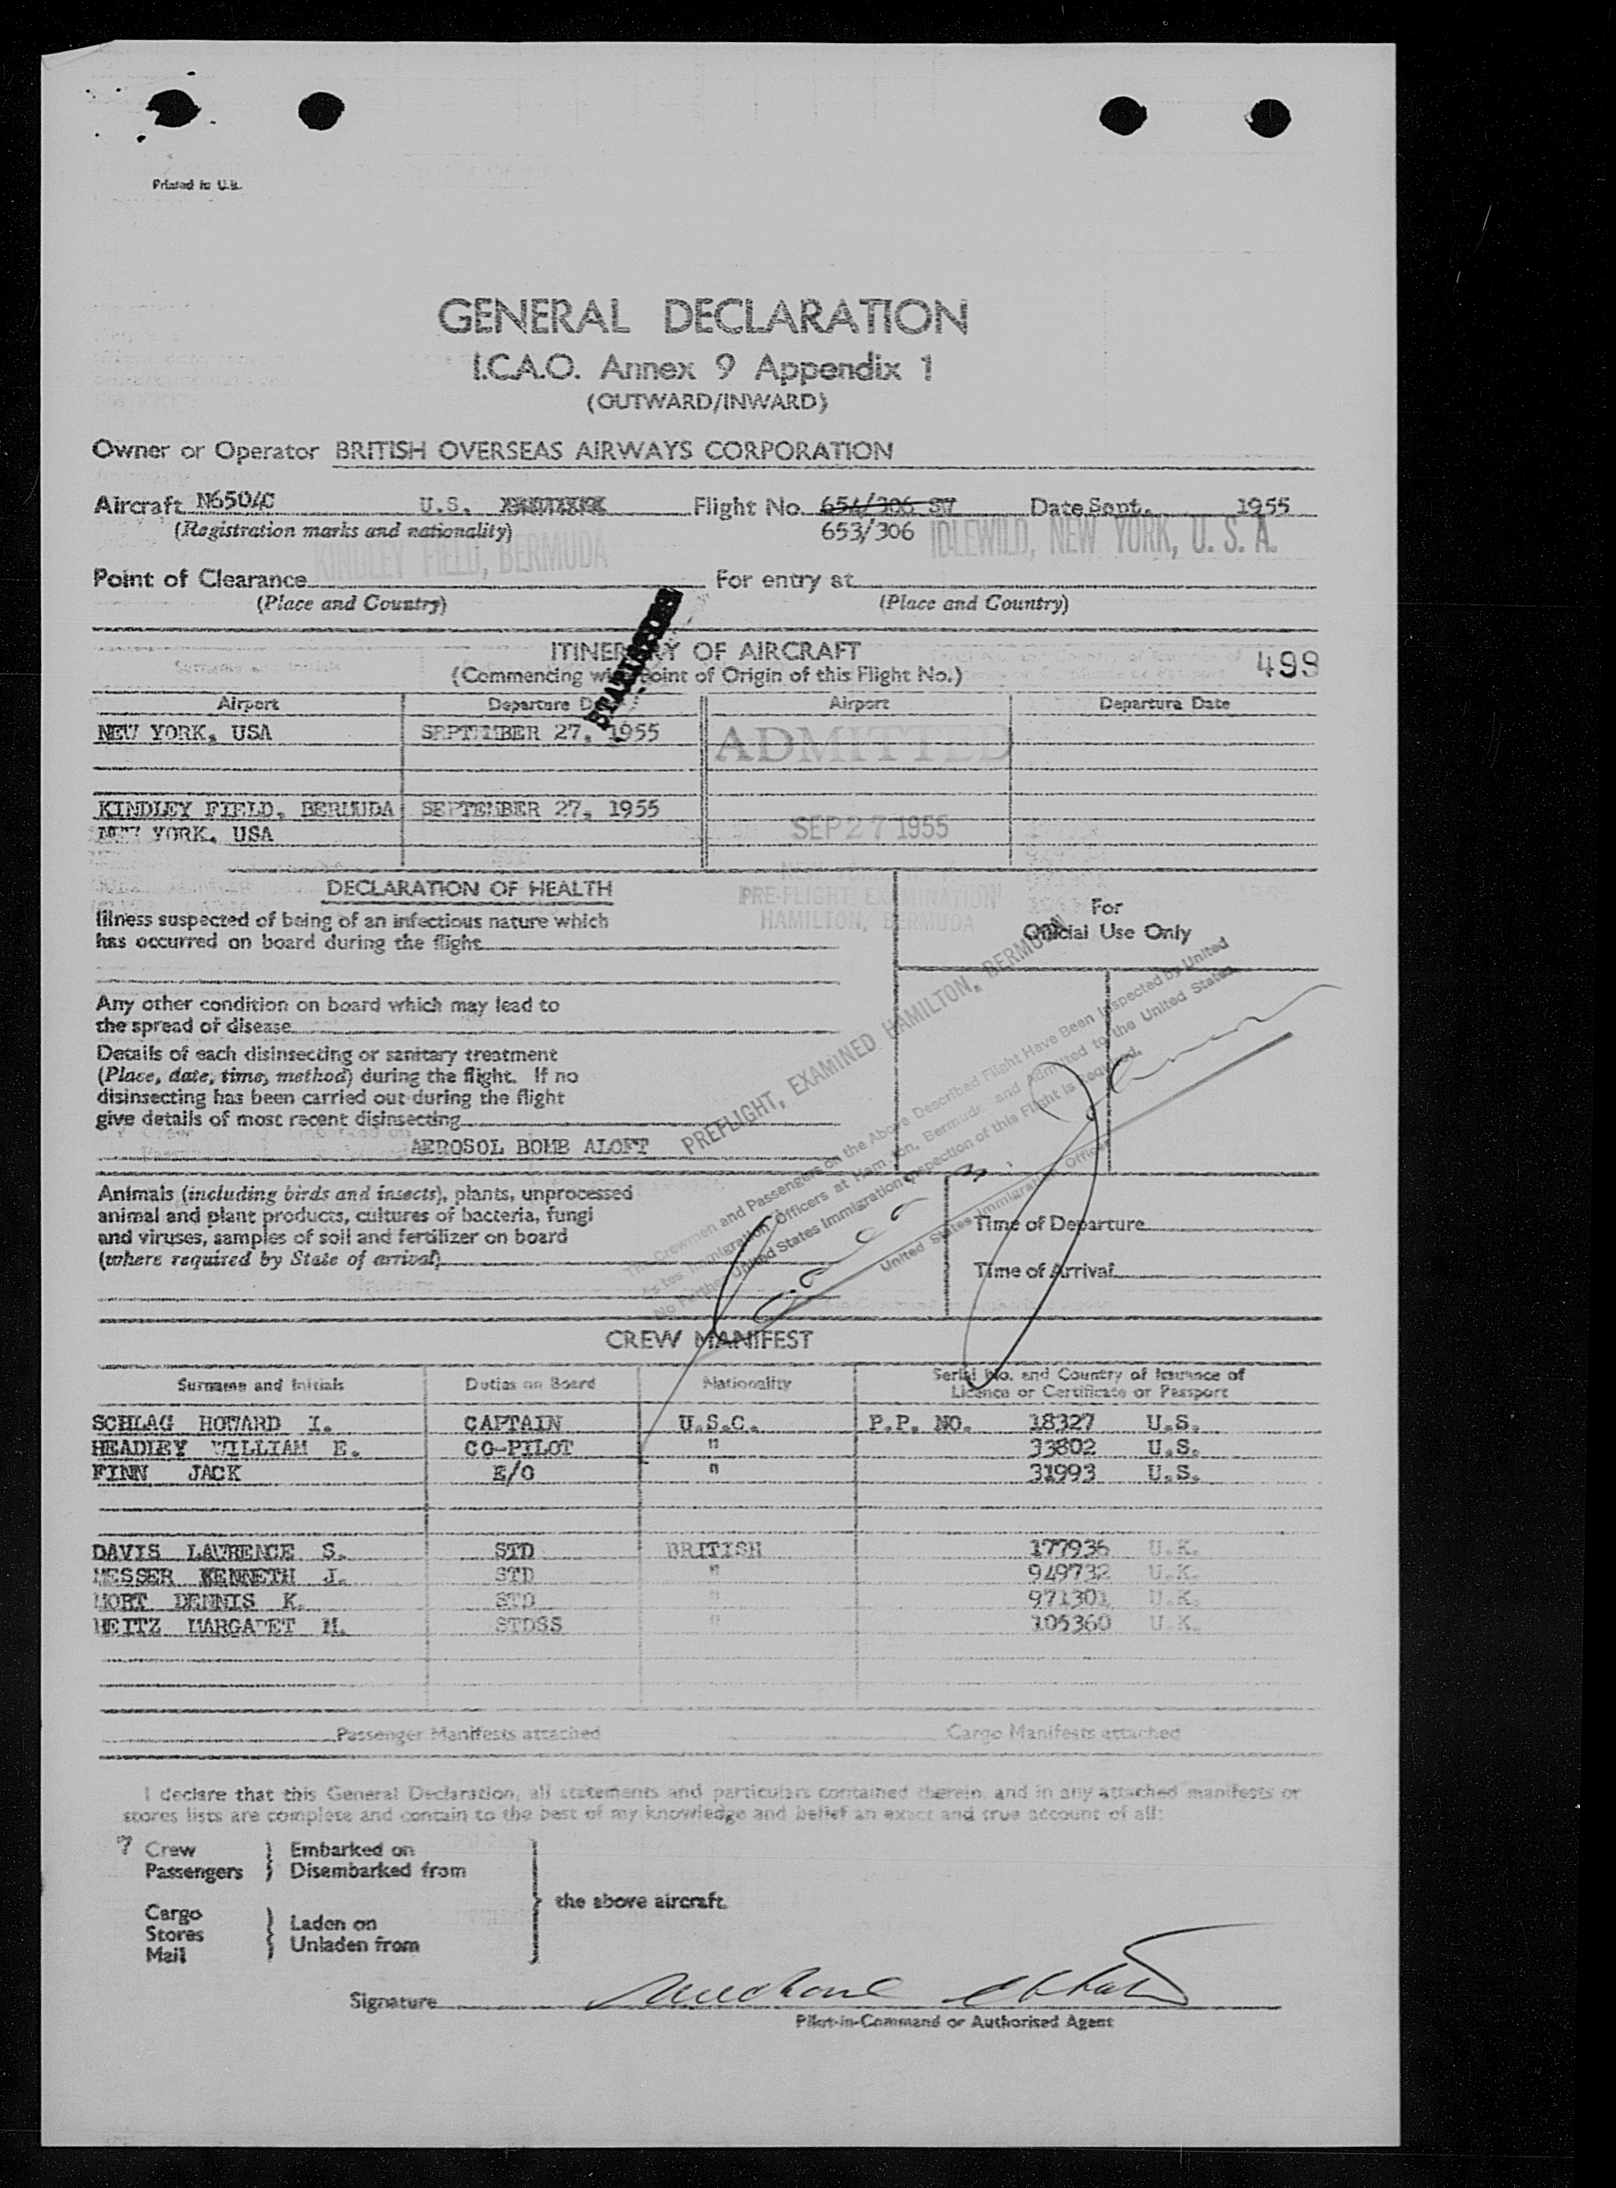 Printed in U.K.
GENERAL DECLARATION
I.C.A.O. Annex 9 Appendix 1
(OUTWARD/INWARD)
Owner or Operator BRITISH OVERSEAS AIRWAYS CORPORATION
Aircraft N6504C U.S. Flight No. 654/306 SW Date Sept. 1955
(Registration marks and nationality) 653/306 IDLEWILD, NEW YORK, U. S. A.
KINDLEY FIELD, BERMUDA
Point of Clearance For entry at
(Place and Country) (Place and Country)
ITINERARY OF AIRCRAFT
(Commencing with point of Origin of this Flight No.) 499
Airport Departure Date Airport Departure Date
NEW YORK, USA SEPTEMBER 27, 1955 ADMITTED
KINDLEY FIELD, BERMUDA SEPTEMBER 27, 1955
NEW YORK, USA SEP 27 1955
DECLARATION OF HEALTH
PRE-FLIGHT EXAMINATION
HAMILTON, BERMUDA
For
Official Use Only
Illness suspected of being of an infectious nature which
has occurred on board during the flight
Any other condition on board which may lead to
the spread of disease
Details of each disinsecting or sanitary treatment
(Place, date, time, method) during the flight. If no
disinsecting has been carried out during the flight
give details of most recent disinsecting
AEROSOL BOMB ALOFT
PREFLIGHT, EXAMINED HAMILTON, BERMUDA
Crewmen and Passengers on the Above Described Flight Have Been Inspected by United
States Immigration Officers at Hamilton, Bermuda and Admitted to the United States.
No Further United States Immigration Inspection of this Flight is Required.
United States Immigration Officer
Animals (including birds and insects), plants, unprocessed
animal and plant products, cultures of bacteria, fungi
and viruses, samples of soil and fertilizer on board
(where required by State of arrival)
Time of Departure
Time of Arrival
CREW MANIFEST
Surname and Initials Duties on Board Nationality Serial No. and Country of Issuance of
Licence or Certificate or Passport
SCHLAG HOWARD I. CAPTAIN U.S.C. P.P. NO. 18327 U.S.
HEADLEY WILLIAM E. CO-PILOT " 33802 U.S.
FINN JACK E/O " 31993 U.S.
DAVIS LAWRENCE S. STD BRITISH 177936 U.K.
MESSER KENNETH J. STD " 949732 U.K.
MORT DENNIS K. STD " 971301 U.K.
HEITZ MARGARET M. STDSS " 105360 U.K.
Passenger Manifests attached Cargo Manifests attached
I declare that this General Declaration, all statements and particulars contained therein, and in any attached manifests or
stores lists are complete and contain to the best of my knowledge and belief an exact and true account of all:
7 Crew Embarked on
Passengers Disembarked from
the above aircraft.
Cargo
Stores Laden on
Mail Unladen from
Signature
Pilot-in-Command or Authorised Agent